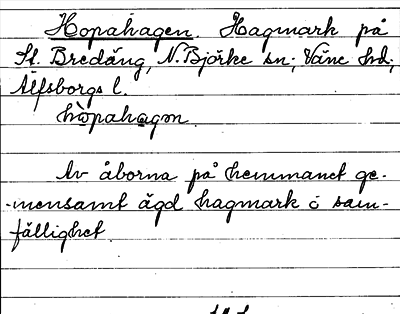 Hopahagen. Hagmark på
St. Bredäng, N. Björke sn; Väne hd;
Älfsborgs l.
hòpahagən.
Av åborna på hemmanet ge-
-mensamt ägd hagmark ö sam-
fällighet.